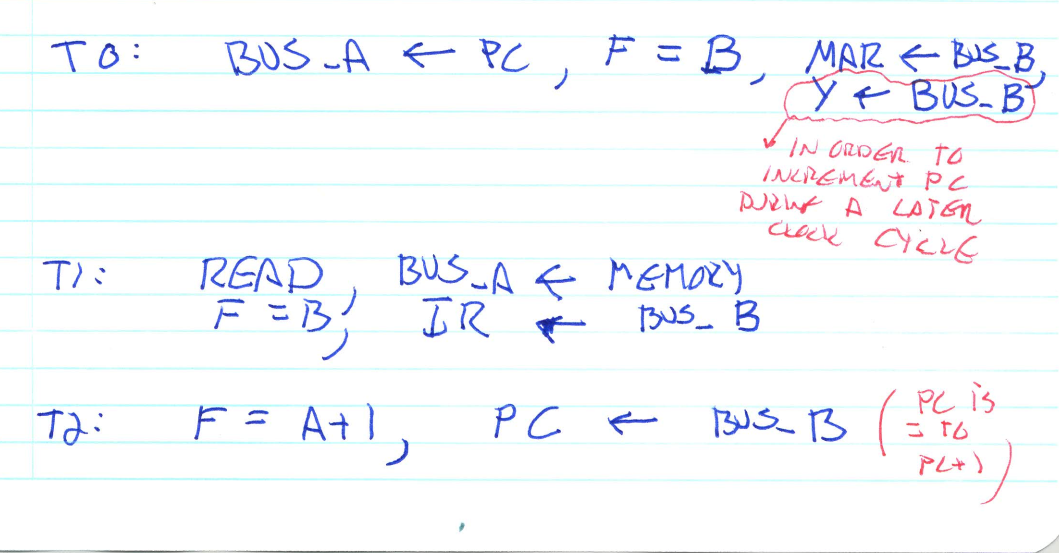 T0: BUS_A ← PC, F = B, MAR ← BUS_B,
Y ← BUS_B
IN ORDER TO
INCREMENT PC
DURING A LATER
CLOCK CYCLE
T1: READ, BUS_A ← MEMORY
F = B, IR ← BUS_B
T2: F = A+1, PC ← BUS_B (PC is
= TO
PC+1)